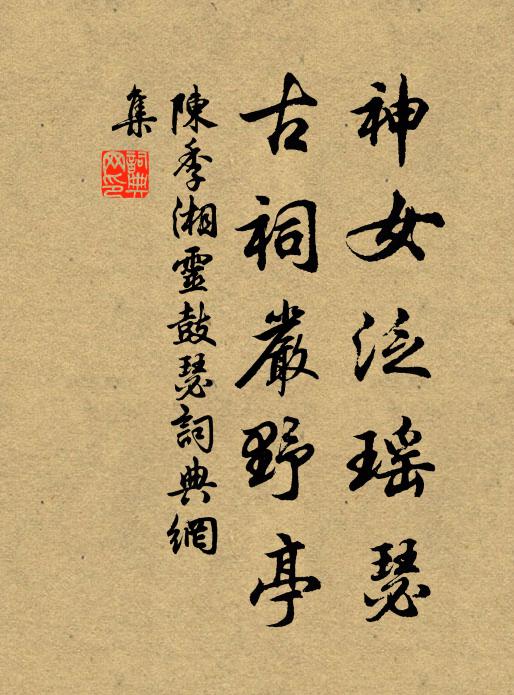 神女泛瑤瑟
古祠嚴野亭
陳季湘靈鼓瑟詞典網
集
詞典網印